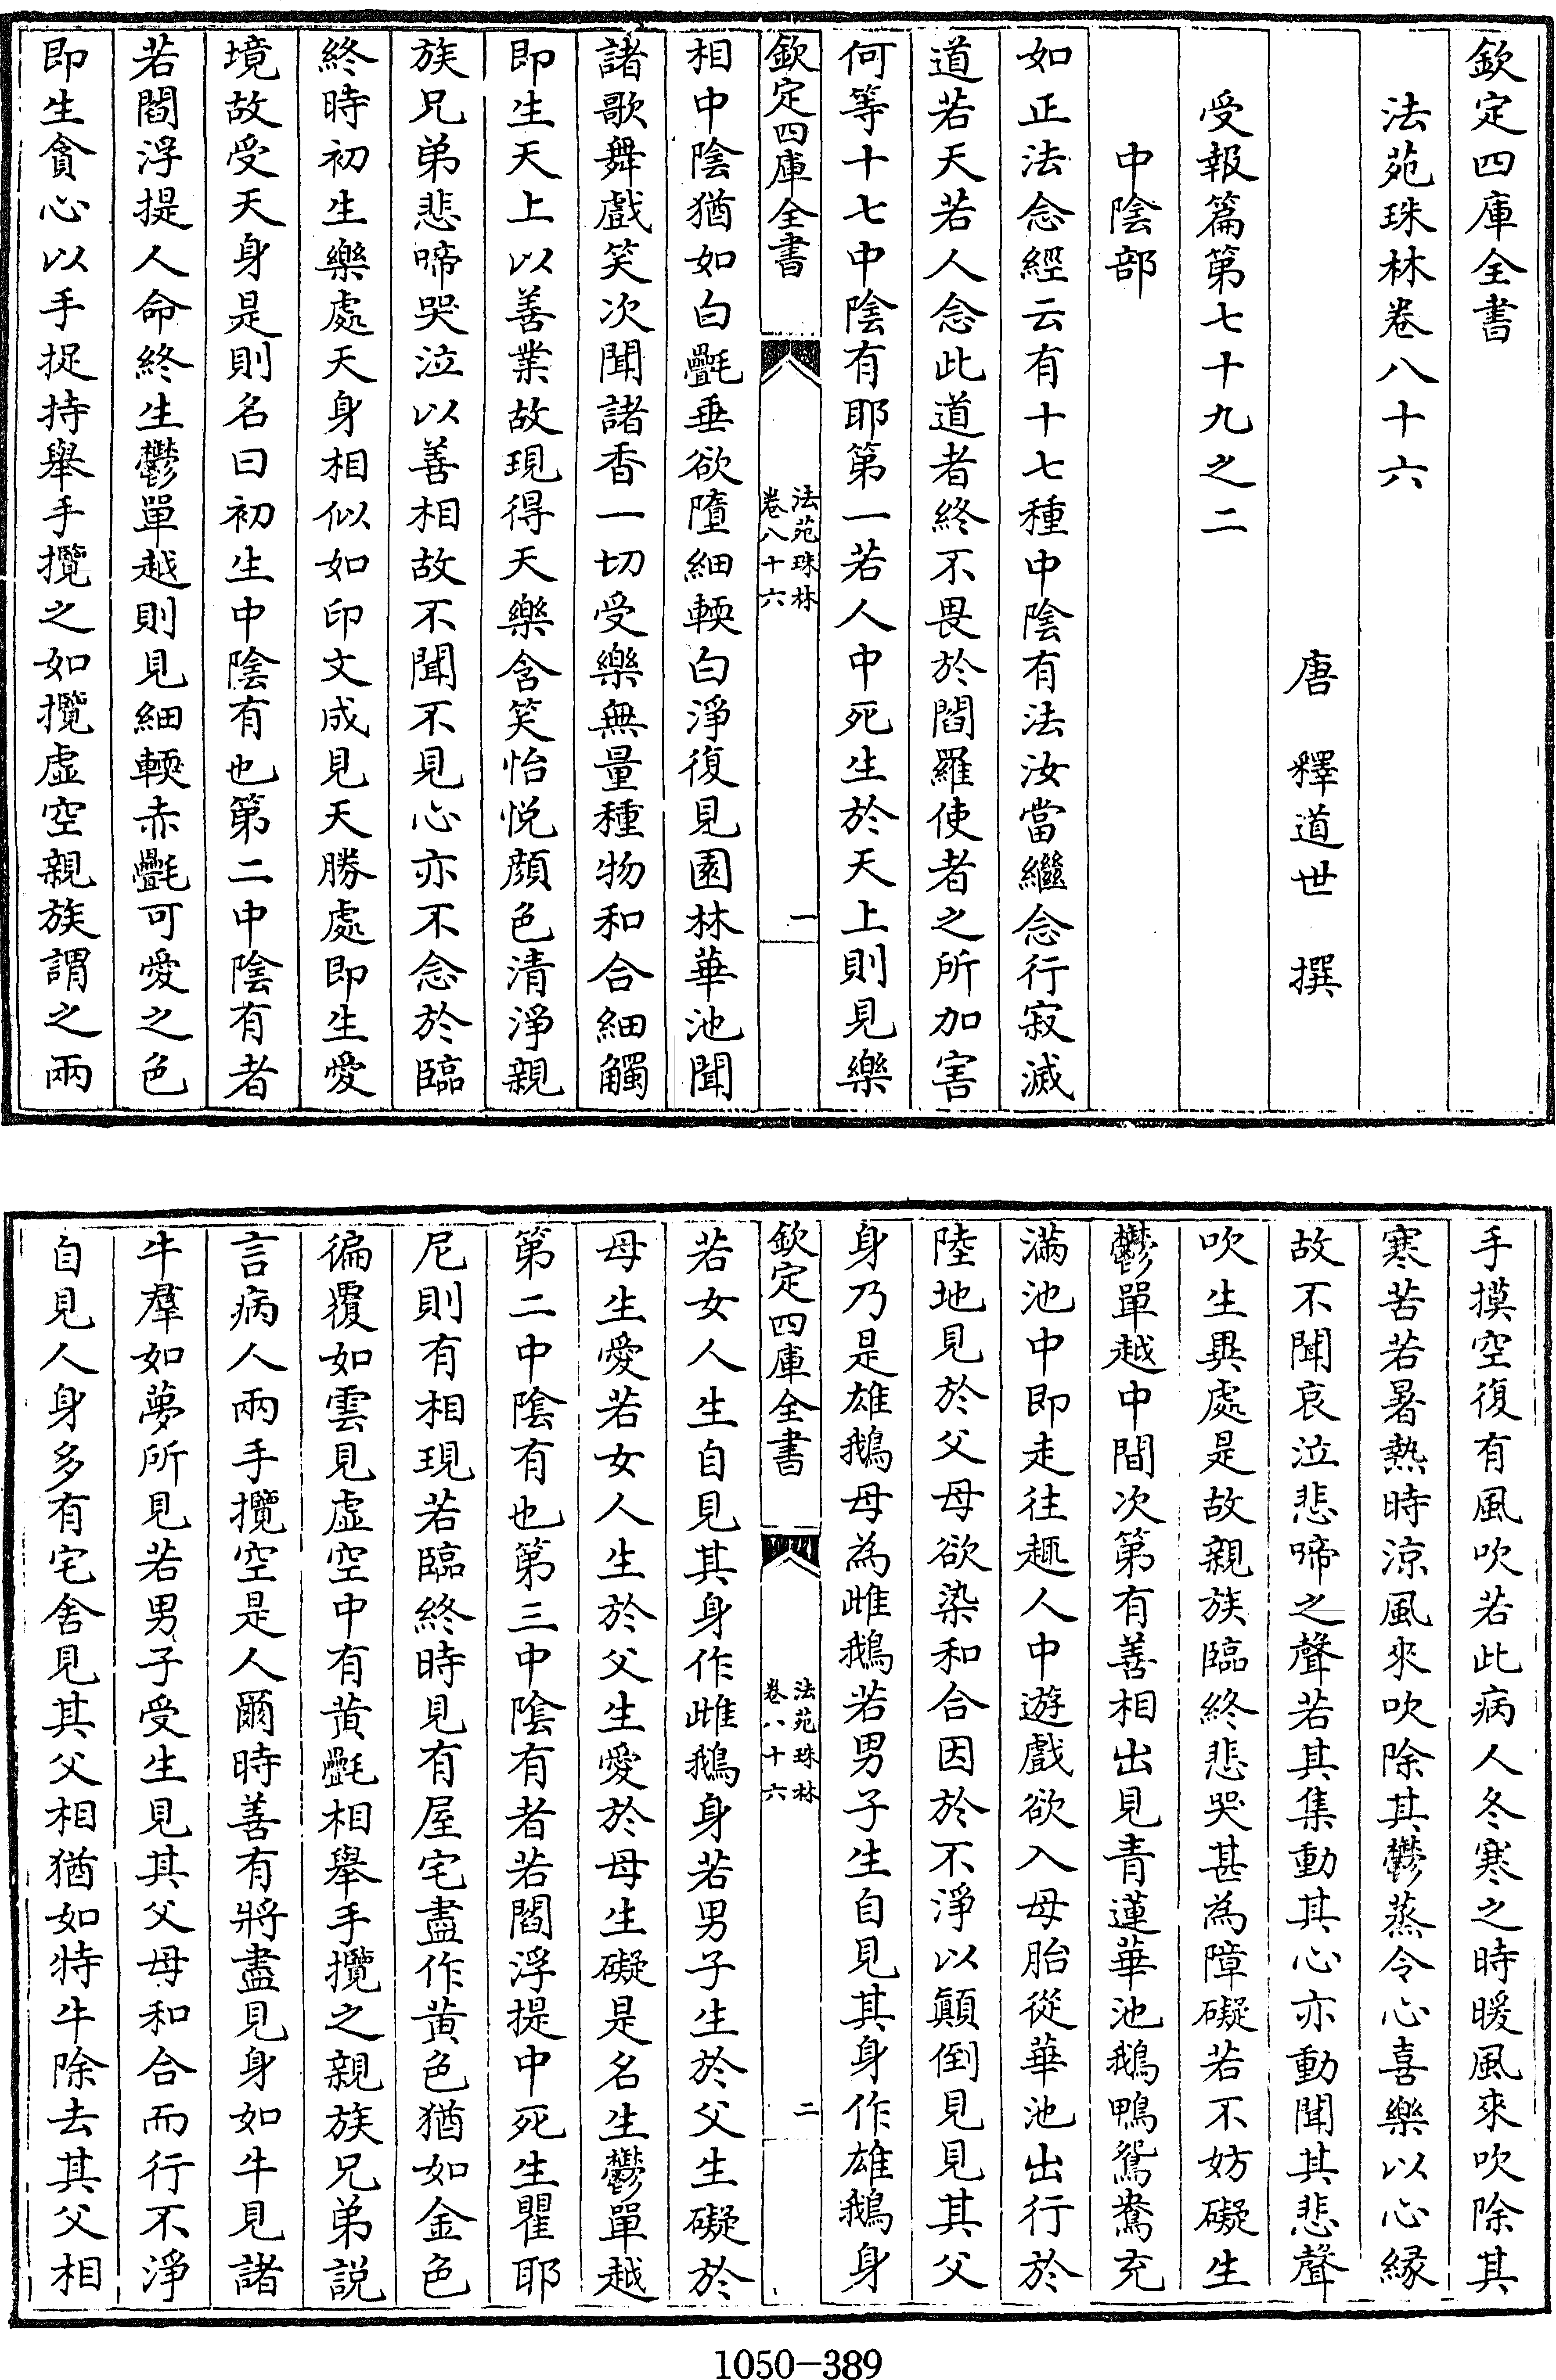 欽定四庫全書
法苑珠林卷八十六
唐 釋道世 撰
受報篇第七十九之二
中陰部
如正法念經云有十七種中陰有法汝當繼念行寂滅
道若天若人念此道者終不畏於閻羅使者之所加害
何等十七中陰有耶第一若人中死生於天上則見樂
欽定四庫全書
法苑珠林
卷八十六
一
相中陰猶如白㲲垂欲墮細輭白淨復見園林華池聞
諸歌舞戲笑次聞諸香一切受樂無量種物和合細觸
即生天上以善業故現得天樂含笑怡悅顔色清淨親
族兄弟悲啼哭泣以善相故不聞不見心亦不念於臨
終時初生樂處天身相似如印文成見天勝處即生愛
境故受天身是則名曰初生中陰有也第二中陰有者
若閻浮提人命終生鬱單越則見細輭赤㲲可愛之色
即生貪心以手捉持舉手攬之如攬虛空親族謂之兩
手摸空復有風吹若此病人冬寒之時暖風來吹除其
寒苦若暑熱時涼風來吹除其鬱蒸令心喜樂以心緣
故不聞哀泣悲啼之聲若其集動其心亦動聞其悲聲
吹生異處是故親族臨終悲哭甚為障礙若不妨礙生
鬱單越中間次第有善相出見青蓮華池鵝鴨鴛鴦充
滿池中即走往趣人中遊戲欲入母胎從華池出行於
陸地見於父母欲染和合因於不淨以顛倒見見其父
身乃是雄鵝母為雌鵝若男子生自見其身作雄鵝身
欽定四庫全書
法苑珠林
卷八十六
二
若女人生自見其身作雌鵝身若男子生於父生礙於
母生愛若女人生於父生愛於母生礙是名生鬱單越
第二中陰有也第三中陰有者若閻浮提中死生瞿耶
尼則有相現若臨終時見有屋宅盡作黃色猶如金色
徧覆如雲見虛空中有黃㲲相舉手攬之親族兄弟説
言病人兩手攬空是人爾時善有將盡見身如牛見諸
牛羣如夢所見若男子受生見其父母和合而行不淨
自見人身多有宅舍見其父相猶如特牛除去其父相
1050-389